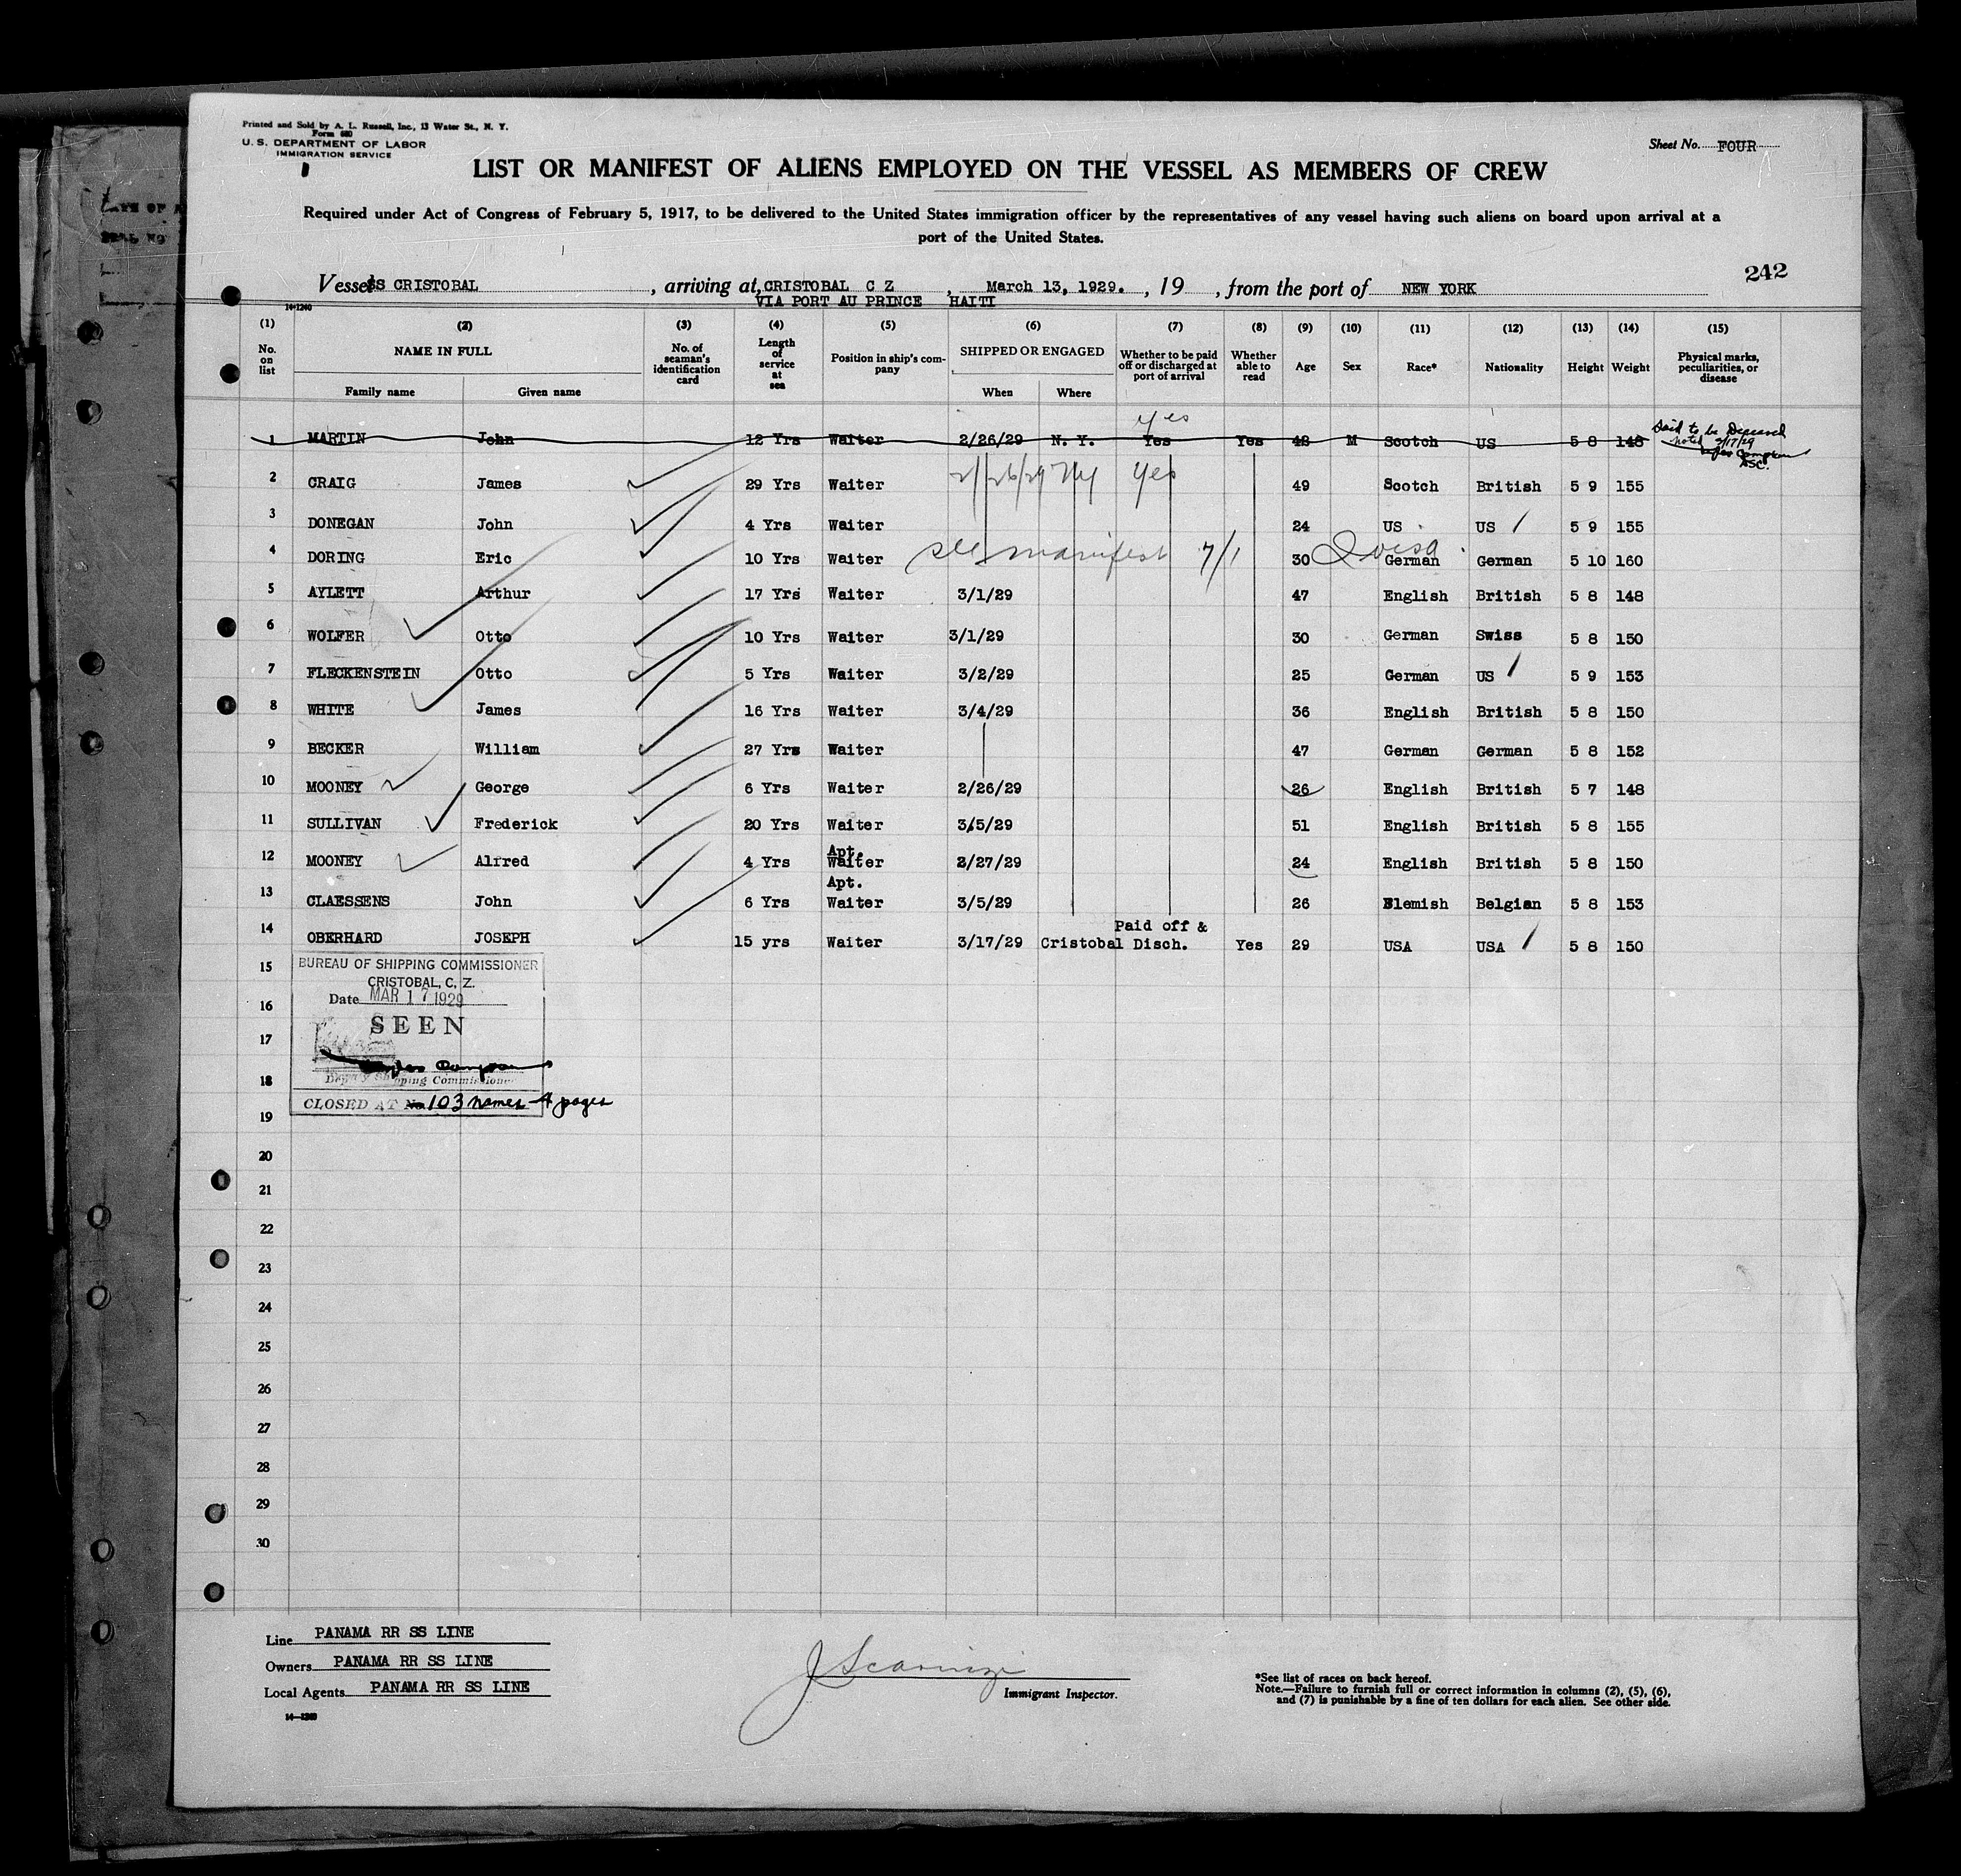 Printed and Sold by A. L. Russell, Inc., 13 Water St., N. Y.
Form 680
U. S. DEPARTMENT OF LABOR
IMMIGRATION SERVICE
Sheet No. FOUR
LIST OR MANIFEST OF ALIENS EMPLOYED ON THE VESSEL AS MEMBERS OF CREW
Required under Act of Congress of February 5, 1917, to be delivered to the United States immigration officer by the representatives of any vessel having such aliens on board upon arrival at a
port of the United States.
242
Vessel SS CRISTOBAL, arriving at, CRISTOBAL C Z, March 13, 1929., 19, from the port of NEW YORK
VIA PORT AU PRINCE HAITI
14-1240
(1) (2) (3) (4) (5) (6) (7) (8) (9) (10) (11) (12) (13) (14) (15)
No. on list NAME IN FULL No. of seaman's identification card Length of service at sea Position in ship's company SHIPPED OR ENGAGED Whether to be paid off or discharged at port of arrival Whether able to read Age Sex Race* Nationality Height Weight Physical marks, peculiarities, or disease
Family name Given name When Where
yes
1 MARTIN John 12 Yrs Waiter 2/26/29 N. Y. Yes Yes 48 M Scotch US 5 8 148 Said to be Deceased
noted 3/17/29
ASC.
2 CRAIG James 29 Yrs Waiter 2/26/29 Ny Yes 49 Scotch British 5 9 155
3 DONEGAN John 4 Yrs Waiter 24 US US 5 9 155
4 DORING Eric 10 Yrs Waiter see manifest 7/1 30 visa German German 5 10 160
5 AYLETT Arthur 17 Yrs Waiter 3/1/29 47 English British 5 8 148
6 WOLFER Otto 10 Yrs Waiter 3/1/29 30 German Swiss 5 8 150
7 FLECKENSTEIN Otto 5 Yrs Waiter 3/2/29 25 German US 5 9 153
8 WHITE James 16 Yrs Waiter 3/4/29 36 English British 5 8 150
9 BECKER William 27 Yrs Waiter 47 German German 5 8 152
10 MOONEY George 6 Yrs Waiter 2/26/29 26 English British 5 7 148
11 SULLIVAN Frederick 20 Yrs Waiter 3/5/29 51 English British 5 8 155
Apt.
12 MOONEY Alfred 4 Yrs Waiter 2/27/29 24 English British 5 8 150
Apt.
13 CLAESSENS John 6 Yrs Waiter 3/5/29 26 Flemish Belgian 5 8 153
Paid off &
14 OBERHARD JOSEPH 15 yrs Waiter 3/17/29 Cristobal Disch. Yes 29 USA USA 5 8 150
15
BUREAU OF SHIPPING COMMISSIONER
CRISTOBAL, C. Z.
Date MAR 17 1929
16
SEEN
17
18
Deputy Shipping Commissioner
CLOSED AT No. 103 names 4 pages
19
20
21
22
23
24
25
26
27
28
29
30
Line PANAMA RR SS LINE
Owners PANAMA RR SS LINE
Local Agents PANAMA RR SS LINE
14-1240
Immigrant Inspector.
*See list of races on back hereof.
Note.—Failure to furnish full or correct information in columns (2), (5), (6),
and (7) is punishable by a fine of ten dollars for each alien. See other side.